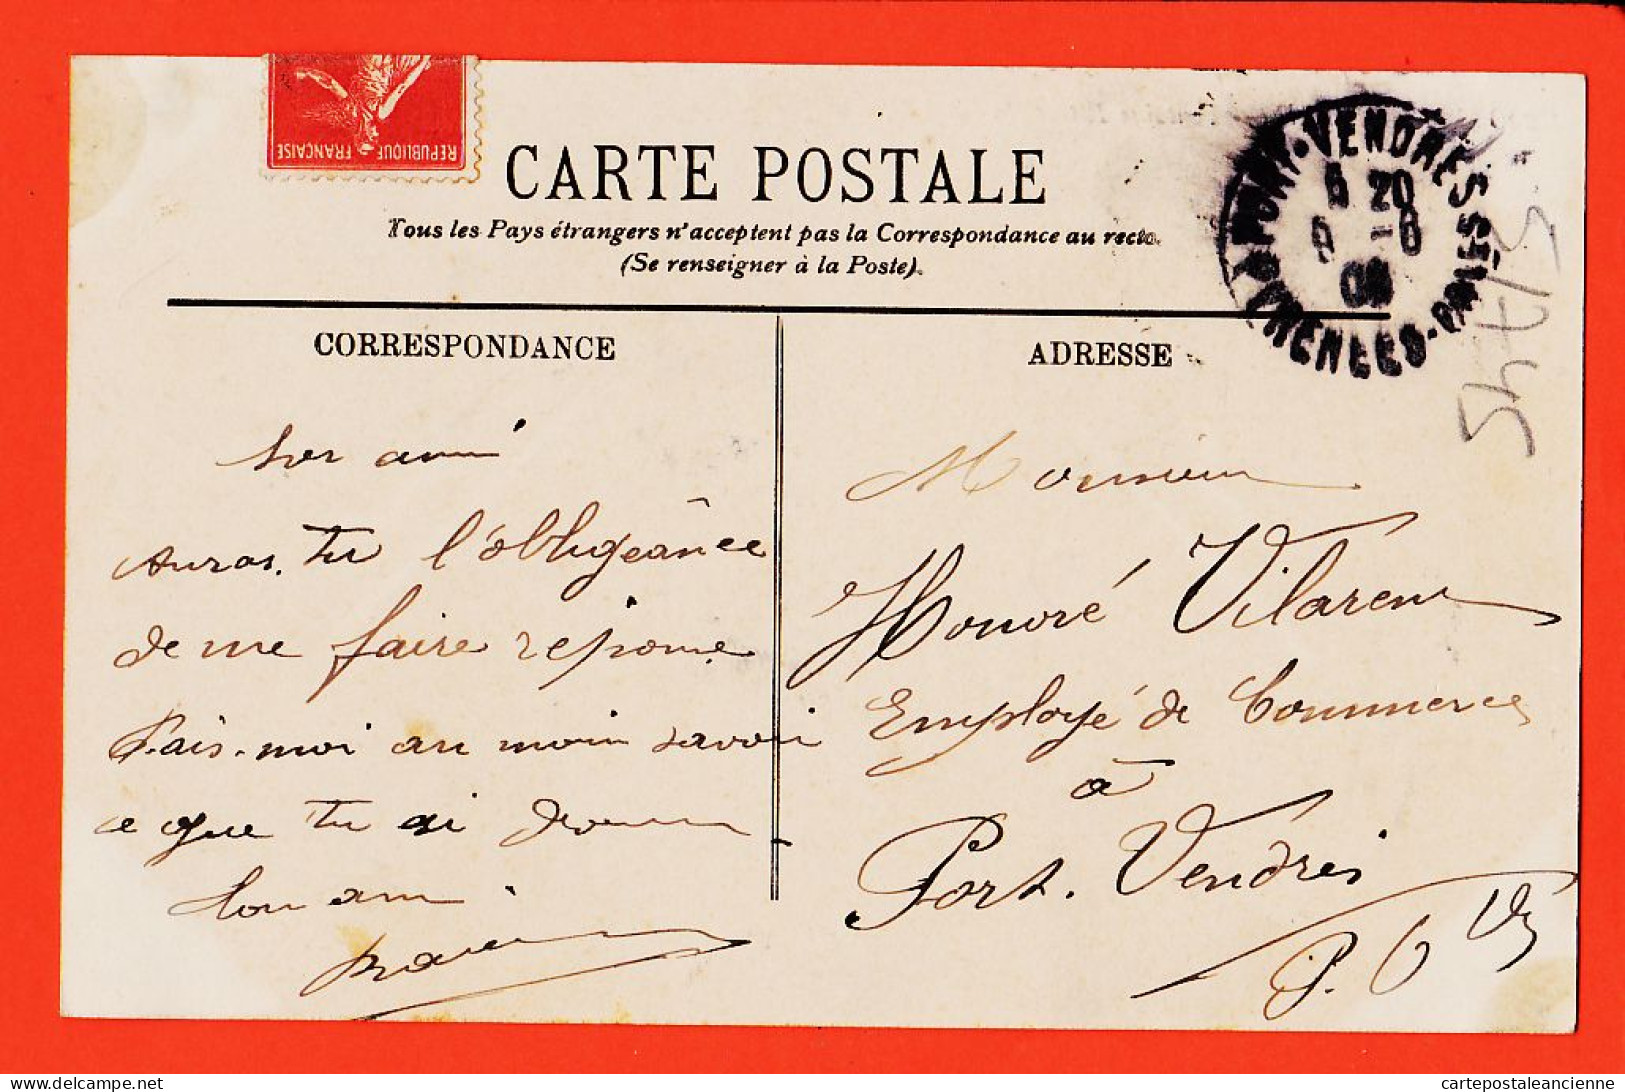 REPUBLIQUE FRANÇAISE
CARTE POSTALE
Tous les Pays étrangers n'acceptent pas la Correspondance au recto.
(Se renseigner à la Poste).
PORT-VENDRES
6 20
6 -6
08
PYRENEES-ORIENTALES
CORRESPONDANCE
ami
Auras-tu l'obligeance
de me faire réponse
Fais-moi au moin savoir
ce que tu ai
Ton ami
ADRESSE
Monsieur
Honoré Vilarem
Employé de Commerce
à
Port-Vendres
P. O
cartepostaleancienne